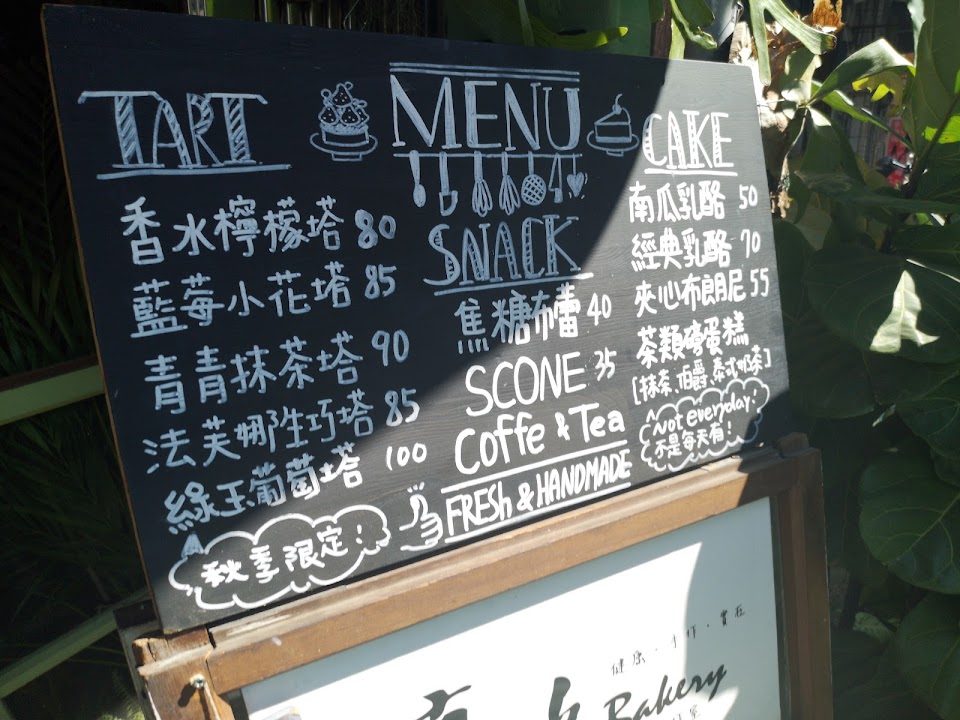 TART
香水檸檬塔 80
藍莓小花塔 85
青青抹茶塔 90
法芙娜生巧塔 85
綠玉葡萄塔 100
秋季限定!
MENU
SNACK
焦糖布蕾 40
SCONE 35
Coffe & Tea
FRESh & HANDMADE
CAKE
南瓜乳酪 50
經典乳酪 70
夾心布朗尼 55
茶類磅蛋糕
[抹茶、伯爵、泰式奶茶]
Not everyday!
不是每天有!
健康・手作・實在
Bakery